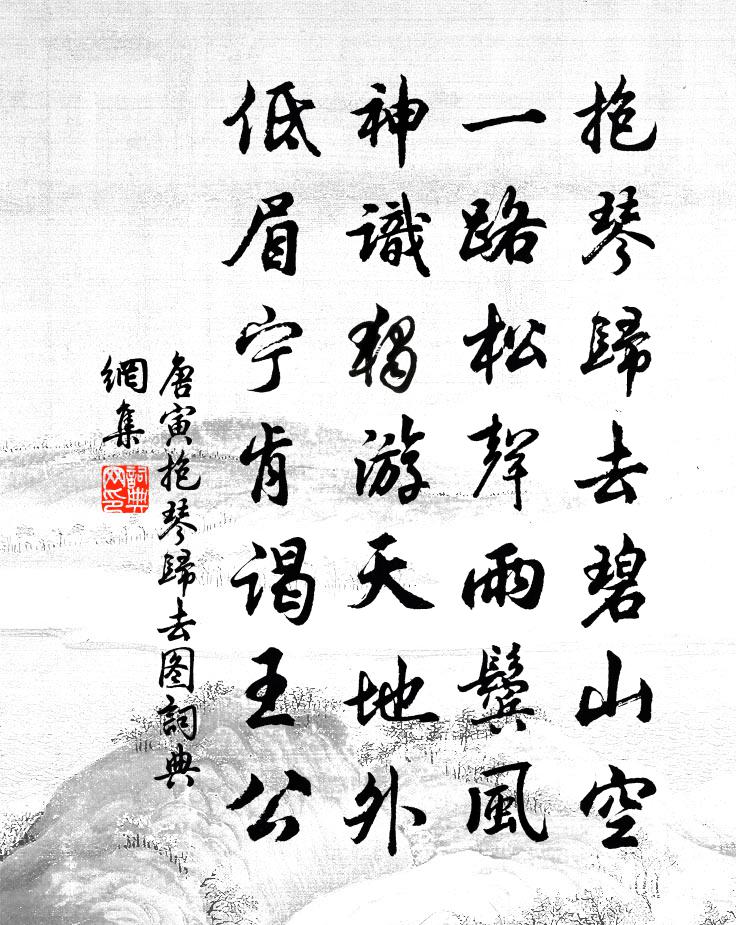 抱琴歸去碧山空
一路松聲雨鬢風
神識獨游天地外
低眉宁肯谒王公
唐寅抱琴歸去图詞典
網集
詞典
网印